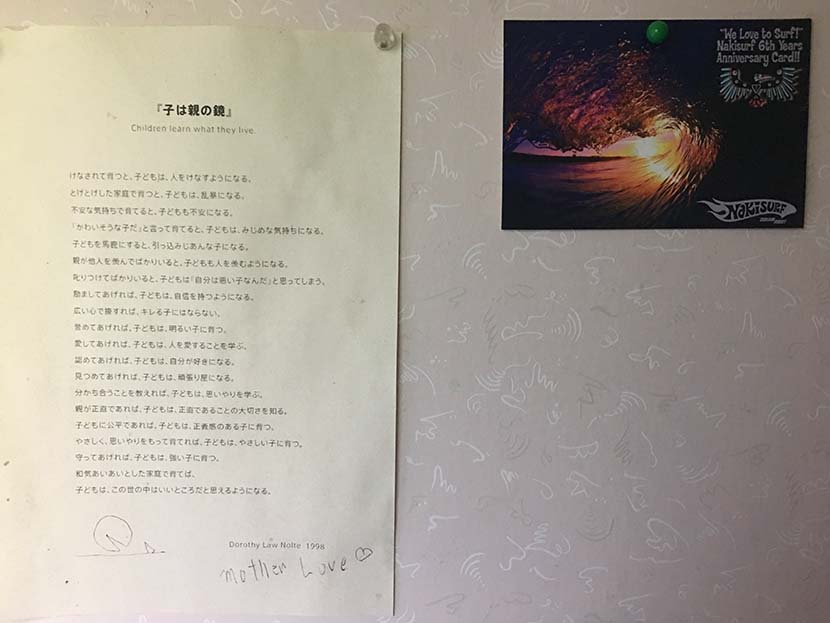 『子は親の鏡』
Children learn what they live.
けなされて育つと、子どもは、人をけなすようになる。
とげとげした家庭で育つと、子どもは、乱暴になる。
不安な気持ちで育てると、子どもも不安になる。
「かわいそうな子だ」と言って育てると、子どもは、みじめな気持ちになる。
子どもを馬鹿にすると、引っ込みじあんな子になる。
親が他人を羨んでばかりいると、子どもも人を羨むようになる。
叱りつけてばかりいると、子どもは「自分は悪い子なんだ」と思ってしまう。
励ましてあげれば、子どもは、自信を持つようになる。
広い心で接すれば、キレる子にはならない。
誉めてあげれば、子どもは、明るい子に育つ。
愛してあげれば、子どもは、人を愛することを学ぶ。
認めてあげれば、子どもは、自分が好きになる。
見つめてあげれば、子どもは、頑張り屋になる。
分かち合うことを教えれば、子どもは、思いやりを学ぶ。
親が正直であれば、子どもは、正直であることの大切さを知る。
子どもに公平であれば、子どもは、正義感のある子に育つ。
やさしく、思いやりをもって育てれば、子どもは、やさしい子に育つ。
守ってあげれば、子どもは、強い子に育つ。
和気あいあいとした家庭で育てば、
子どもは、この世の中はいいところだと思えるようになる。
Dorothy Law Nolte 1998
mother Love
"We Love to Surf!"
Nakisurf 6th Years
Anniversary Card!!
NAKISURF